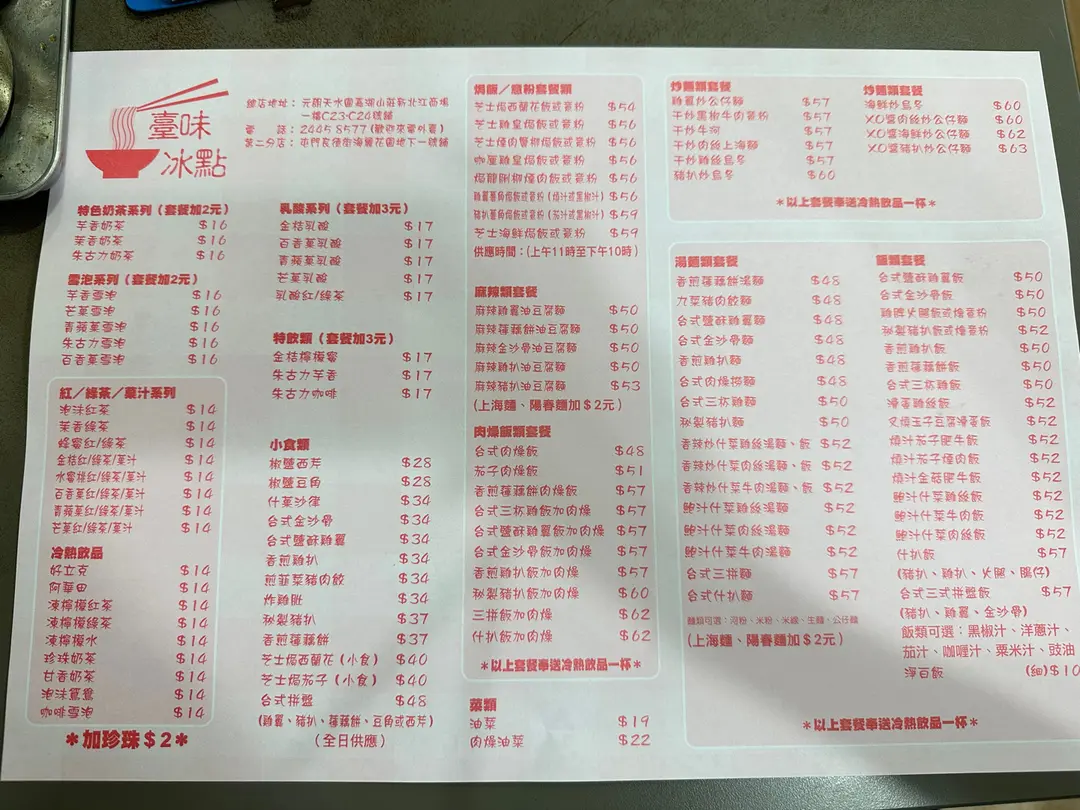 臺味
冰點
總店地址：元朗天水圍嘉湖山莊新北江商場
一樓C23-C26號舖
電　話：2445 8577 (歡迎來電外賣)
第二分店：屯門友德街海麗花園地下一號舖
特色奶茶系列（套餐加2元）
芋香奶茶 $16
茉香奶茶 $16
朱古力奶茶 $16
雪泡系列（套餐加2元）
芋香雪泡 $16
芒菓雪泡 $16
青蘋菓雪泡 $16
朱古力雪泡 $16
百香菓雪泡 $16
紅／綠茶／菓汁系列
泡沫紅茶 $14
茉香綠茶 $14
蜂蜜紅/綠茶 $14
金桔紅/綠茶/菓汁 $14
水蜜桃紅/綠茶/菓汁 $14
百香菓紅/綠茶/菓汁 $14
青蘋菓紅/綠茶/菓汁 $14
芒菓紅/綠茶/菓汁 $14
冷熱飲品
好立克 $14
阿華田 $14
凍檸檬紅茶 $14
凍檸檬綠茶 $14
凍檸檬水 $14
珍珠奶茶 $14
甘香奶茶 $14
泡沫鴛鴦 $14
咖啡雪泡 $14
＊加珍珠＄2＊
乳酸系列（套餐加3元）
金桔乳酸 $17
百香菓乳酸 $17
青蘋菓乳酸 $17
芒菓乳酸 $17
乳酸紅/綠茶 $17
特飲類（套餐加3元）
金桔檸檬蜜 $17
朱古力芋香 $17
朱古力咖啡 $17
小食類
椒鹽西芹 $28
椒鹽豆角 $28
什菓沙律 $34
台式金沙骨 $34
台式鹽酥雞翼 $34
香煎雞扒 $34
煎韮菜豬肉餃 $34
炸雞髀 $34
秘製豬扒 $37
香煎蓮藕餅 $37
芝士焗西蘭花（小食） $40
芝士焗茄子（小食） $40
台式拼盤 $48
(雞翼、豬扒、蓮藕餅、豆角或西芹)
（全日供應）
焗飯／意粉套餐類
芝士焗西蘭花飯或意粉 $54
芝士雞皇焗飯或意粉 $56
芝士煙肉蟹柳焗飯或意粉 $56
咖喱雞皇焗飯或意粉 $56
焗龍脷柳煙肉飯或意粉 $56
雞翼薯角焗飯或意粉（燒汁或黑椒汁） $56
豬扒薯角焗飯或意粉（茄汁或黑椒汁） $59
芝士海鮮焗飯或意粉 $59
供應時間：(上午11時至下午10時)
麻辣類套餐
麻辣雞翼油豆腐麵 $50
麻辣蓮藕餅油豆腐麵 $50
麻辣金沙骨油豆腐麵 $50
麻辣雞扒油豆腐麵 $50
麻辣豬扒油豆腐麵 $53
(上海麵、陽春麵加＄2元)
肉燥飯類套餐
台式肉燥飯 $48
茄子肉燥飯 $51
香煎蓮藕餅肉燥飯 $57
台式三杯雞飯加肉燥 $57
台式鹽酥雞翼飯加肉燥 $57
台式金沙骨飯加肉燥 $57
香煎雞扒飯加肉燥 $57
秘製豬扒飯加肉燥 $60
三拼飯加肉燥 $62
什扒飯加肉燥 $62
＊以上套餐奉送冷熱飲品一杯＊
菜類
油菜 $19
肉燥油菜 $22
炒麵類套餐
雞翼炒公仔麵 $57
干炒黑椒牛肉意粉 $57
干炒牛河 $57
干炒肉絲上海麵 $57
干炒雞絲烏冬 $57
豬扒炒烏冬 $60
炒麵類套餐
海鮮炒烏冬 $60
XO醬肉絲炒公仔麵 $60
XO醬海鮮炒公仔麵 $62
XO醬豬扒炒公仔麵 $63
＊以上套餐奉送冷熱飲品一杯＊
湯麵類套餐
香煎蓮藕餅湯麵 $48
九菜豬肉餃麵 $48
台式鹽酥雞翼麵 $48
台式金沙骨麵 $48
香煎雞扒麵 $48
台式肉燥撈麵 $48
台式三杯雞麵 $50
秘製豬扒麵 $50
香辣炒什菜雞絲湯麵、飯 $52
香辣炒什菜肉絲湯麵、飯 $52
香辣炒什菜牛肉湯麵、飯 $52
鮑汁什菜雞絲湯麵 $52
鮑汁什菜肉絲湯麵 $52
鮑汁什菜牛肉湯麵 $52
台式三拼麵 $57
台式什扒麵 $57
麵類可選：河粉、米粉、米線、生麵、公仔麵
(上海麵、陽春麵加＄2元)
飯類套餐
台式鹽酥雞翼飯 $50
台式金沙骨飯 $50
雞髀火腿飯或燴意粉 $50
秘製豬扒飯或燴意粉 $52
香煎雞扒飯 $50
香煎蓮藕餅飯 $50
台式三杯雞飯 $50
滑蛋雞絲飯 $52
叉燒玉子豆腐滑蛋飯 $52
燒汁茄子肥牛飯 $52
燒汁茄子煙肉飯 $52
燒汁金菇肥牛飯 $52
鮑汁什菜雞絲飯 $52
鮑汁什菜牛肉飯 $52
鮑汁什菜肉絲飯 $52
什扒飯 $57
(豬扒、雞扒、火腿、腸仔)
台式三式拼盤飯 $57
(豬扒、雞翼、金沙骨)
飯類可選：黑椒汁、洋蔥汁、
茄汁、咖喱汁、粟米汁、豉油
淨白飯 (細)$10
＊以上套餐奉送冷熱飲品一杯＊